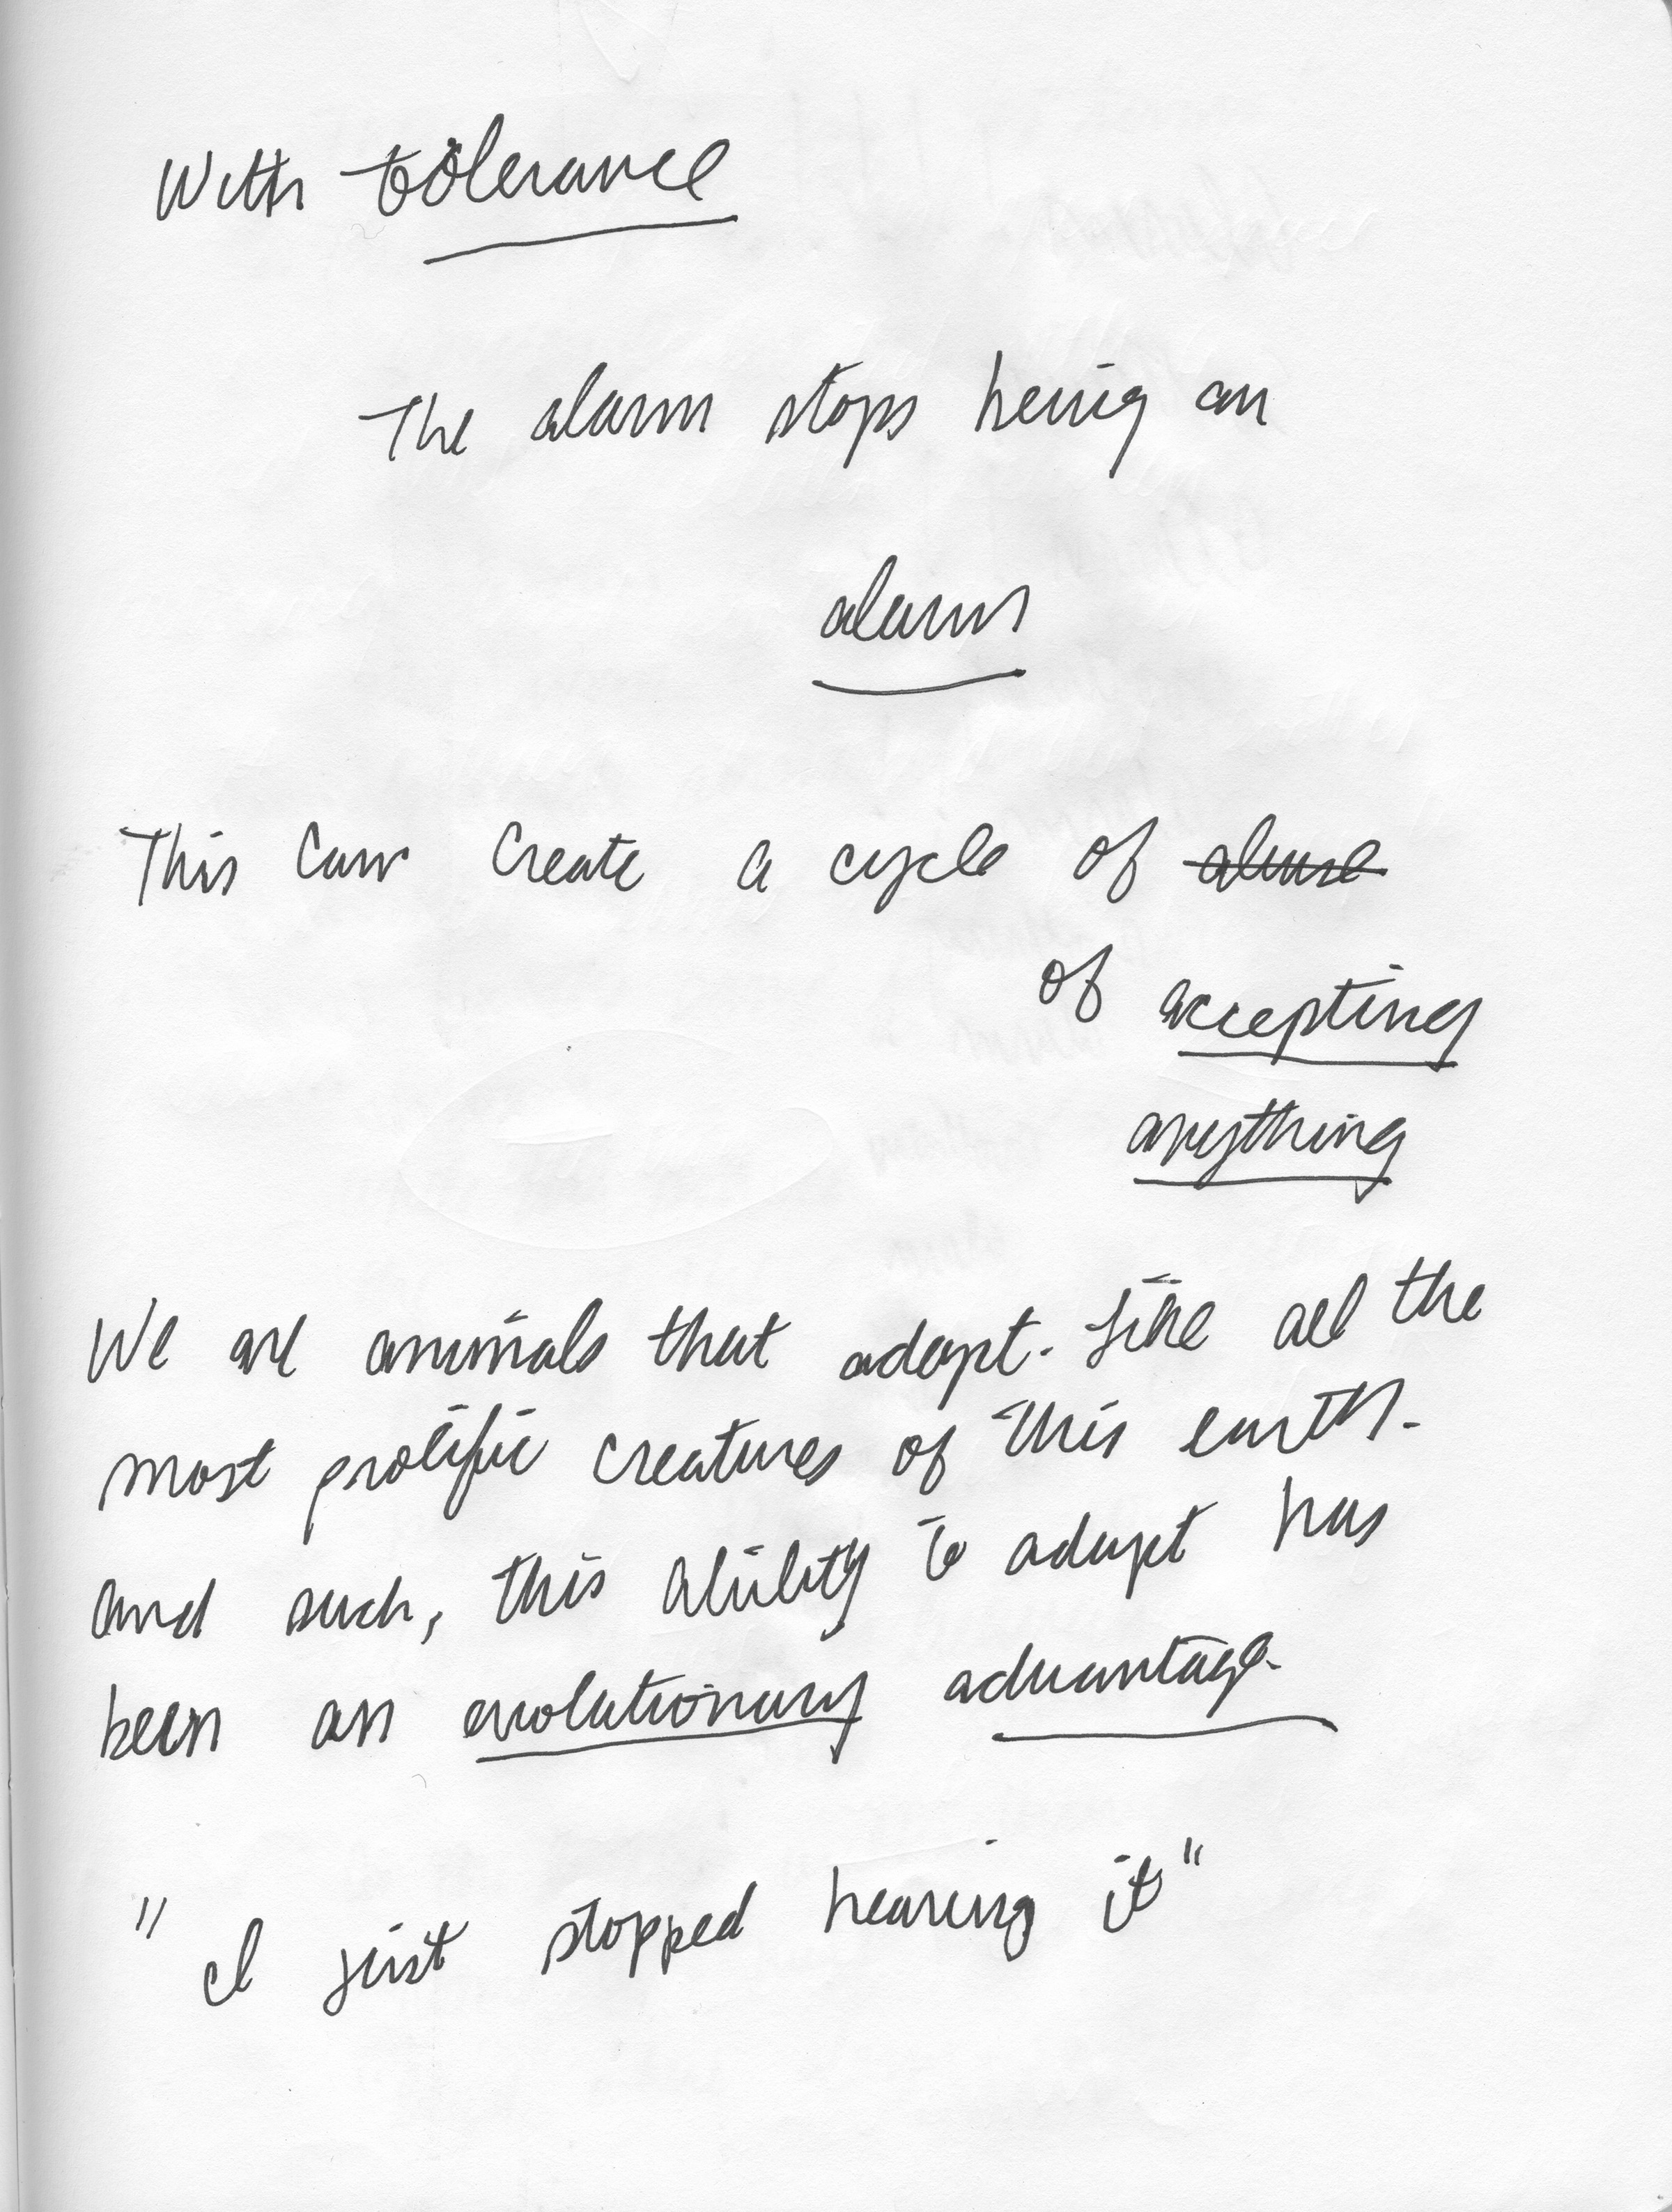 With tolerance
The alarm stops being an
alarm
This can create a cycle of abuse
of accepting
anything
We are animals that adapt. Like all the
most prolific creatures of this earth.
And such, this ability to adapt has
been an evolutionary advantage.
"I just stopped hearing it"